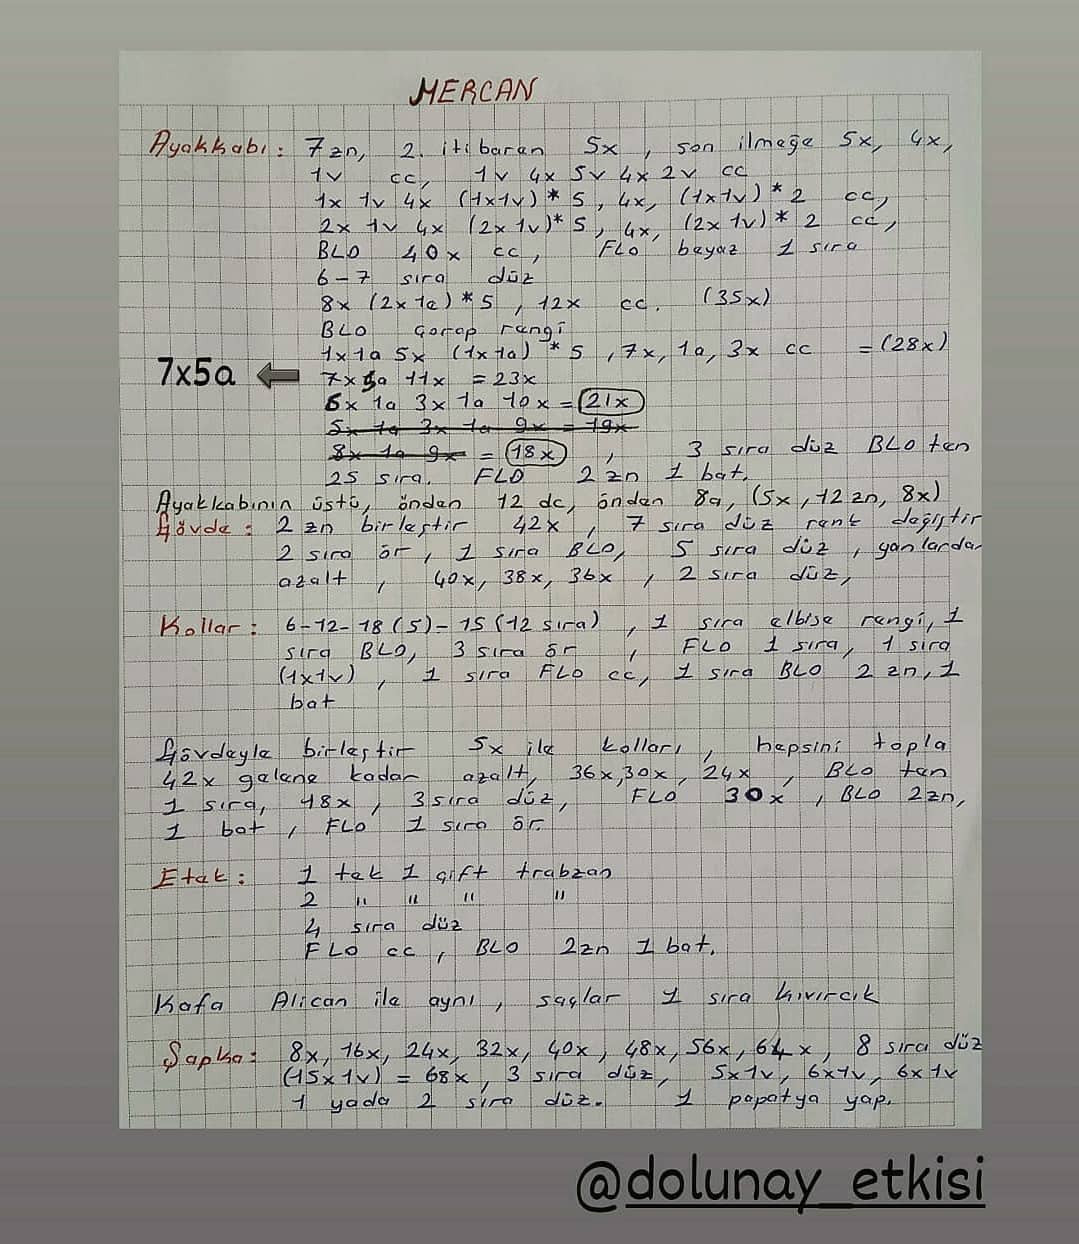 MERCAN
Ayakkabı: 7 zn, 2. itibaren 5x, son ilmeğe 5x, 4x,
1v cc, 1v 4x 5v 4x 2v cc
1x 1v 4x (1x1v) * 5, 4x, (1x1v) * 2 cc,
2x 1v 4x (2x 1v)* 5, 4x, (2x 1v)* 2 cc,
BLO 40x cc, FLO beyaz 1 sıra
6-7 sıra düz
8x (2x 1a) * 5, 12x cc. (35x)
BLO çorap rengi
1x 1a 5x (1x 1a) * 5, 7x, 1a, 3x cc = (28x)
7x5a ← 7x 5a 11x = 23x
6x 1a 3x 1a 10x = 21x
5x 1a 3x 1a 9x = 19x
8x 1a 9x = 18x, 3 sıra düz BLO ten
25 sıra. FLO 2 zn 1 bat.
Ayakkabının üstü, önden 12 dc, önden 8a, (5x, 12 zn, 8x)
Gövde: 2 zn birleştir 42x, 7 sıra düz renk değiştir
2 sıra ör, 1 sıra BLO, 5 sıra düz, yanlardan
azalt, 40x, 38x, 36x, 2 sıra düz,
Kollar: 6-12-18 (5)- 15 (12 sıra), 1 sıra elbise rengi, 1
sıra BLO, 3 sıra ör, FLO 1 sıra, 1 sıra
(1x1v), 1 sıra FLO cc, 1 sıra BLO 2 zn, 1
bat
Gövdeyle birleştir 5x ile kolları, hepsini topla
42x gelene kadar azalt, 36x, 30x, 24x, BLO ten
1 sıra, 18x, 3 sıra düz, FLO 30x, BLO 2zn,
1 bat, FLO 1 sıra ör.
Etek: 1 tek 1 çift trabzan
2 " " " "
4 sıra düz
FLO cc, BLO 2zn 1 bat.
Kafa Alican ile aynı, saçlar 1 sıra kıvırcık
Şapka: 8x, 16x, 24x, 32x, 40x, 48x, 56x, 64x, 8 sıra düz
(15x 1v) = 68x, 3 sıra düz, 5x1v, 6x1v, 6x1v
1 yada 2 sıra düz. 1 papatya yap.
@dolunay_etkisi